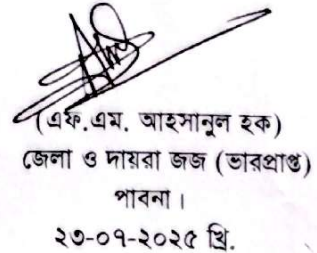 (এফ.এম. আহসানুল হক)
জেলা ও দায়রা জজ (ভারপ্রাপ্ত)
পাবনা।
২৩-০৭-২০২৫ খ্রি.